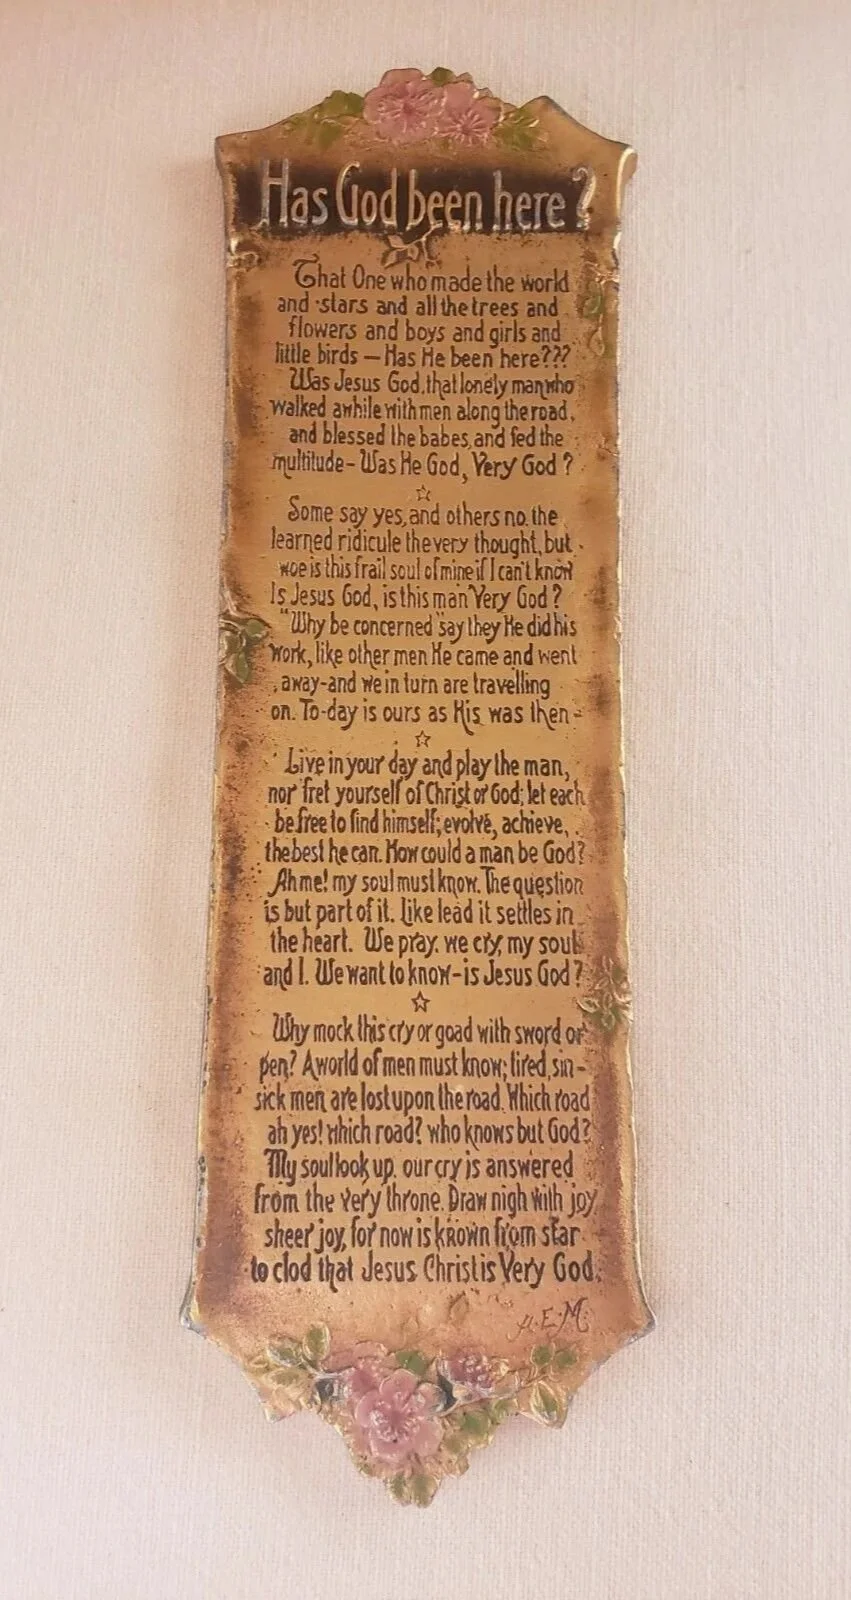 Has God been here?
That One who made the world
and stars and all the trees and
flowers and boys and girls and
little birds — Has He been here???
Was Jesus God, that lonely man who
walked awhile with men along the road,
and blessed the babes, and fed the
multitude - Was He God, Very God?
☆
Some say yes, and others no. the
learned ridicule the very thought, but
woe is this frail soul of mine if I can't know
Is Jesus God, is this man Very God?
"Why be concerned" say they He did his
work, like other men He came and went
away - and we in turn are travelling
on. To-day is ours as His was then -
☆
Live in your day and play the man,
nor fret yourself of Christ or God; let each
be free to find himself; evolve, achieve,
the best he can. How could a man be God?
Ah me! my soul must know. The question
is but part of it. Like lead it settles in
the heart. We pray. we cry, my soul
and I. We want to know - is Jesus God?
☆
Why mock this cry or goad with sword or
pen? A world of men must know; tired, sin-
sick men are lost upon the road. Which road
ah yes! which road? who knows but God?
My soul look up. our cry is answered
from the very throne. Draw nigh with joy
sheer joy, for now is known from star
to clod that Jesus Christ is Very God.
H.E.M.